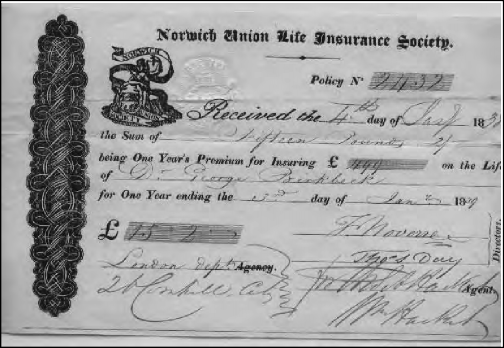 Norwich Union Life Insurance Society.
NORWICH
SOCIETY
Policy No 2432
Received the 4th day of Jany 183
the Sum of Fifteen Pounds
being One Year's Premium for Insuring £ 499 on the Lif
of Dr George Birkbeck
for One Year ending the day of Jany 1839
£ 15
F Noverre
Directors.
Thos Day
London Dept Agency.
26 Cornhill, City
Agent
Wm Hackett